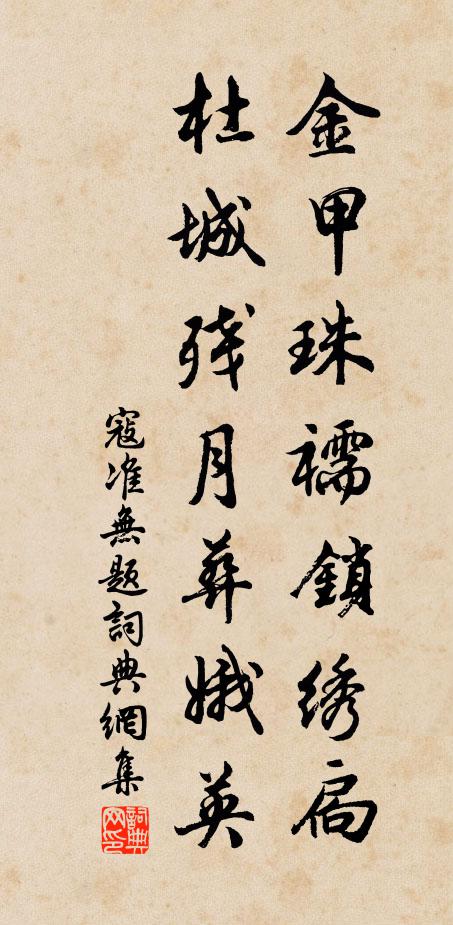 金甲珠襦鎖綉扃
杜城残月葬娥英
寇准無題詞典網集
詞典网印